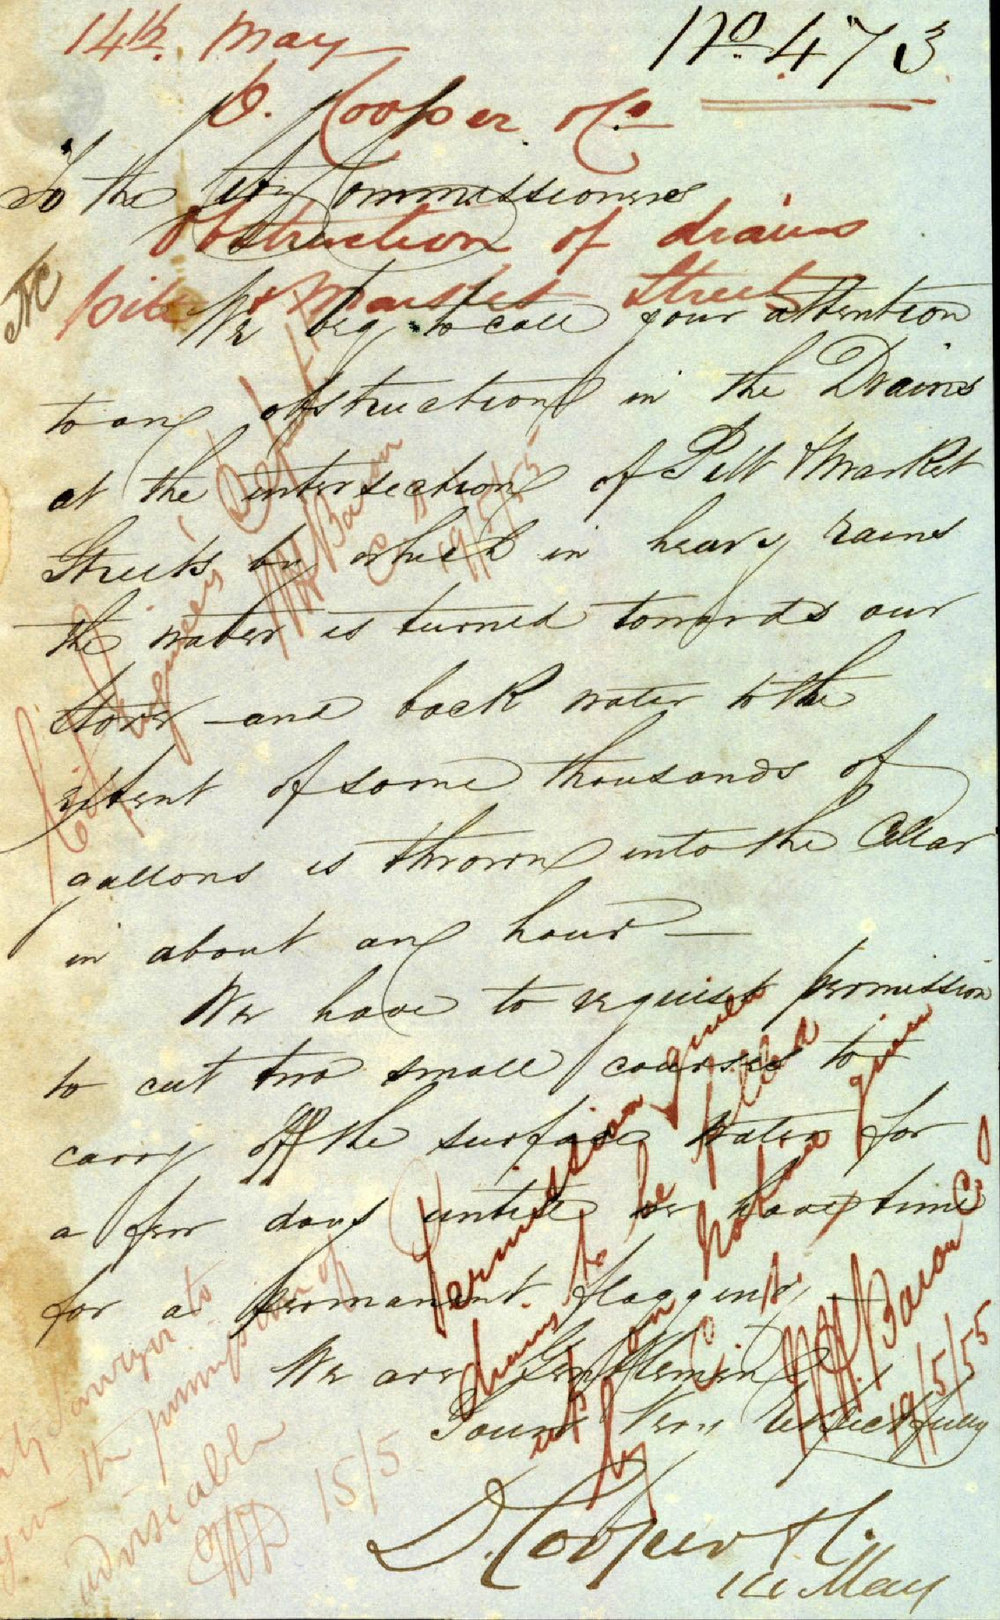 14th. May
No. 473
D. Cooper & Co.
To the City Commissioners
Obstruction of drains
Pitt & Market Street
We beg to call your attention
to an obstruction in the Drains
at the intersection of Pitt & Market
Streets by which in heavy rains
the water is turned towards our
Store and back water to the
extent of some thousands of
gallons is thrown into the Cellar
in about an hour —
We have to request permission
to cut two small courses to
carry off the surface water for
a few days until we have time
for a permanent flagging,
We are Gentlemen
Yours Very Respectfully
D. Cooper & Co.
14 May
City Engineer's Dept
19/5/55
Permission given
drains to be filled
up on notice given
by C. S.
19/5/55
City Surveyor to
if the permission
advisable
15/5